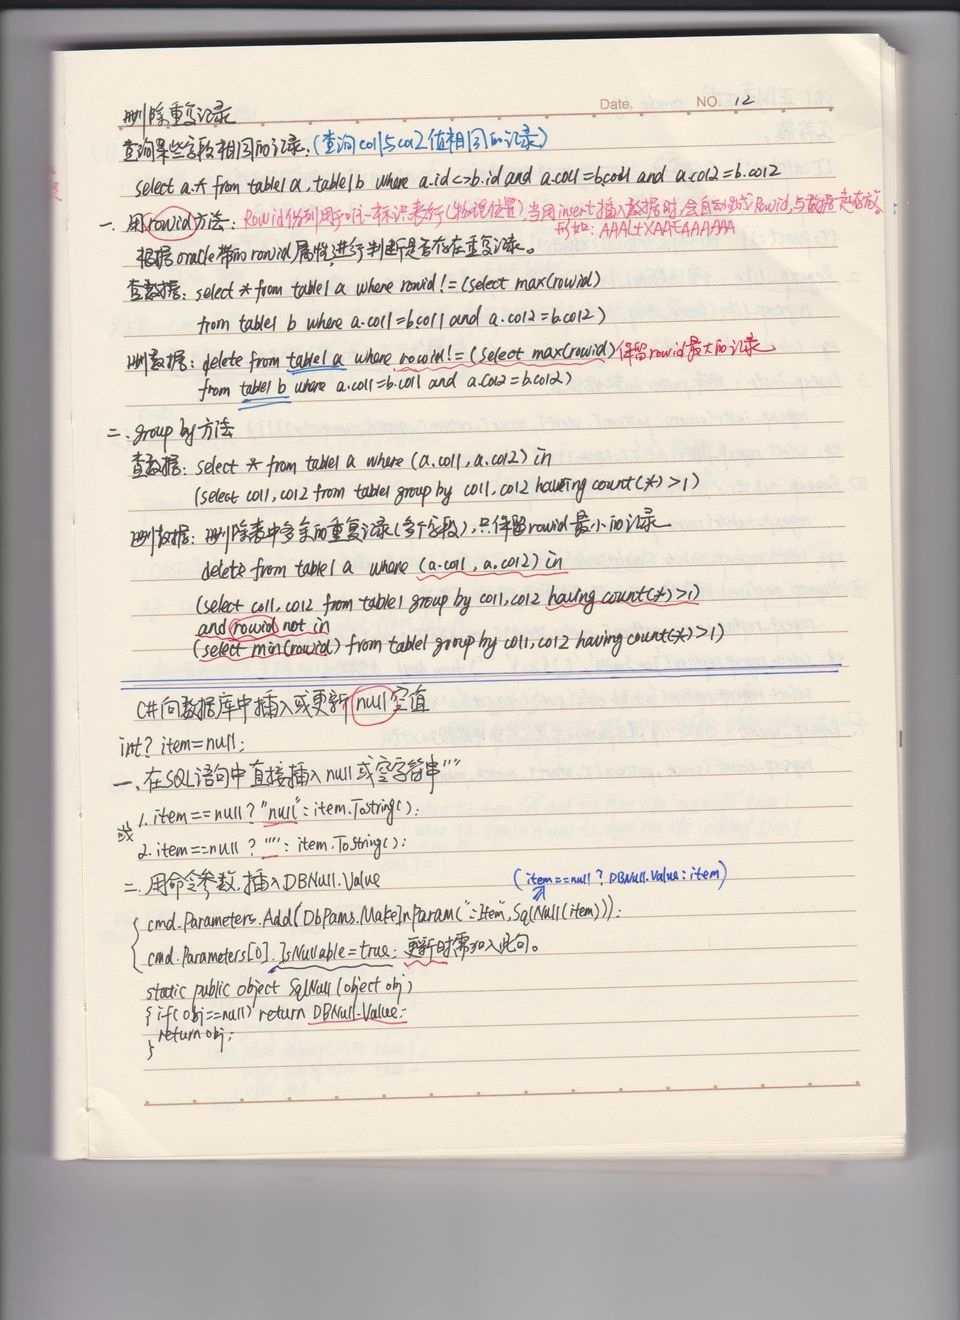 Date. NO. 12
删除重复记录
查询某些字段相同的记录.(查询col1与col2值相同的记录)
select a.* from table1 a, table1 b where a.id<>b.id and a.col1=b.col1 and a.col2=b.col2
一、用rowid方法: Rowid伪列用于唯一标识表行(物理位置)当用insert插入数据时,会自动生成Rowid,与数据一起存放。
形如: AAAL+XAAEAAAAAA
根据oracle带的rowid属性,进行判断是否存在重复记录。
查数据: select * from table1 a where rowid!=(select max(rowid)
from table1 b where a.col1=b.col1 and a.col2=b.col2)
删数据: delete from table1 a where rowid!=(select max(rowid) 保留rowid最大的记录
from table1 b where a.col1=b.col1 and a.col2=b.col2)
二、group by方法
查数据: select * from table1 a where (a.col1, a.col2) in
(select col1, col2 from table1 group by col1, col2 having count(*)>1)
删数据: 删除表中多余的重复记录(多个字段),只保留rowid最小的记录
delete from table1 a where (a.col1, a.col2) in
(select col1, col2 from table1 group by col1, col2 having count(*)>1)
and rowid not in
(select min(rowid) from table1 group by col1, col2 having count(*)>1)
C#向数据库中插入或更新null空值
int? item=null;
一、在SQL语句中直接插入null或空字符串""
1. item==null? "null": item.ToString();
或
2. item==null? "": item.ToString();
二、用命令参数,插入DBNull.Value
(item==null? DBNull.Value: item)
{ cmd.Parameters.Add(DbPams.MakeInParam(":Item", SqlNull(item)));
cmd.Parameters[0].IsNullable=true; 更新时需加入此句。
static public object SqlNull(object obj)
{ if(obj==null) return DBNull.Value;
return obj;
}